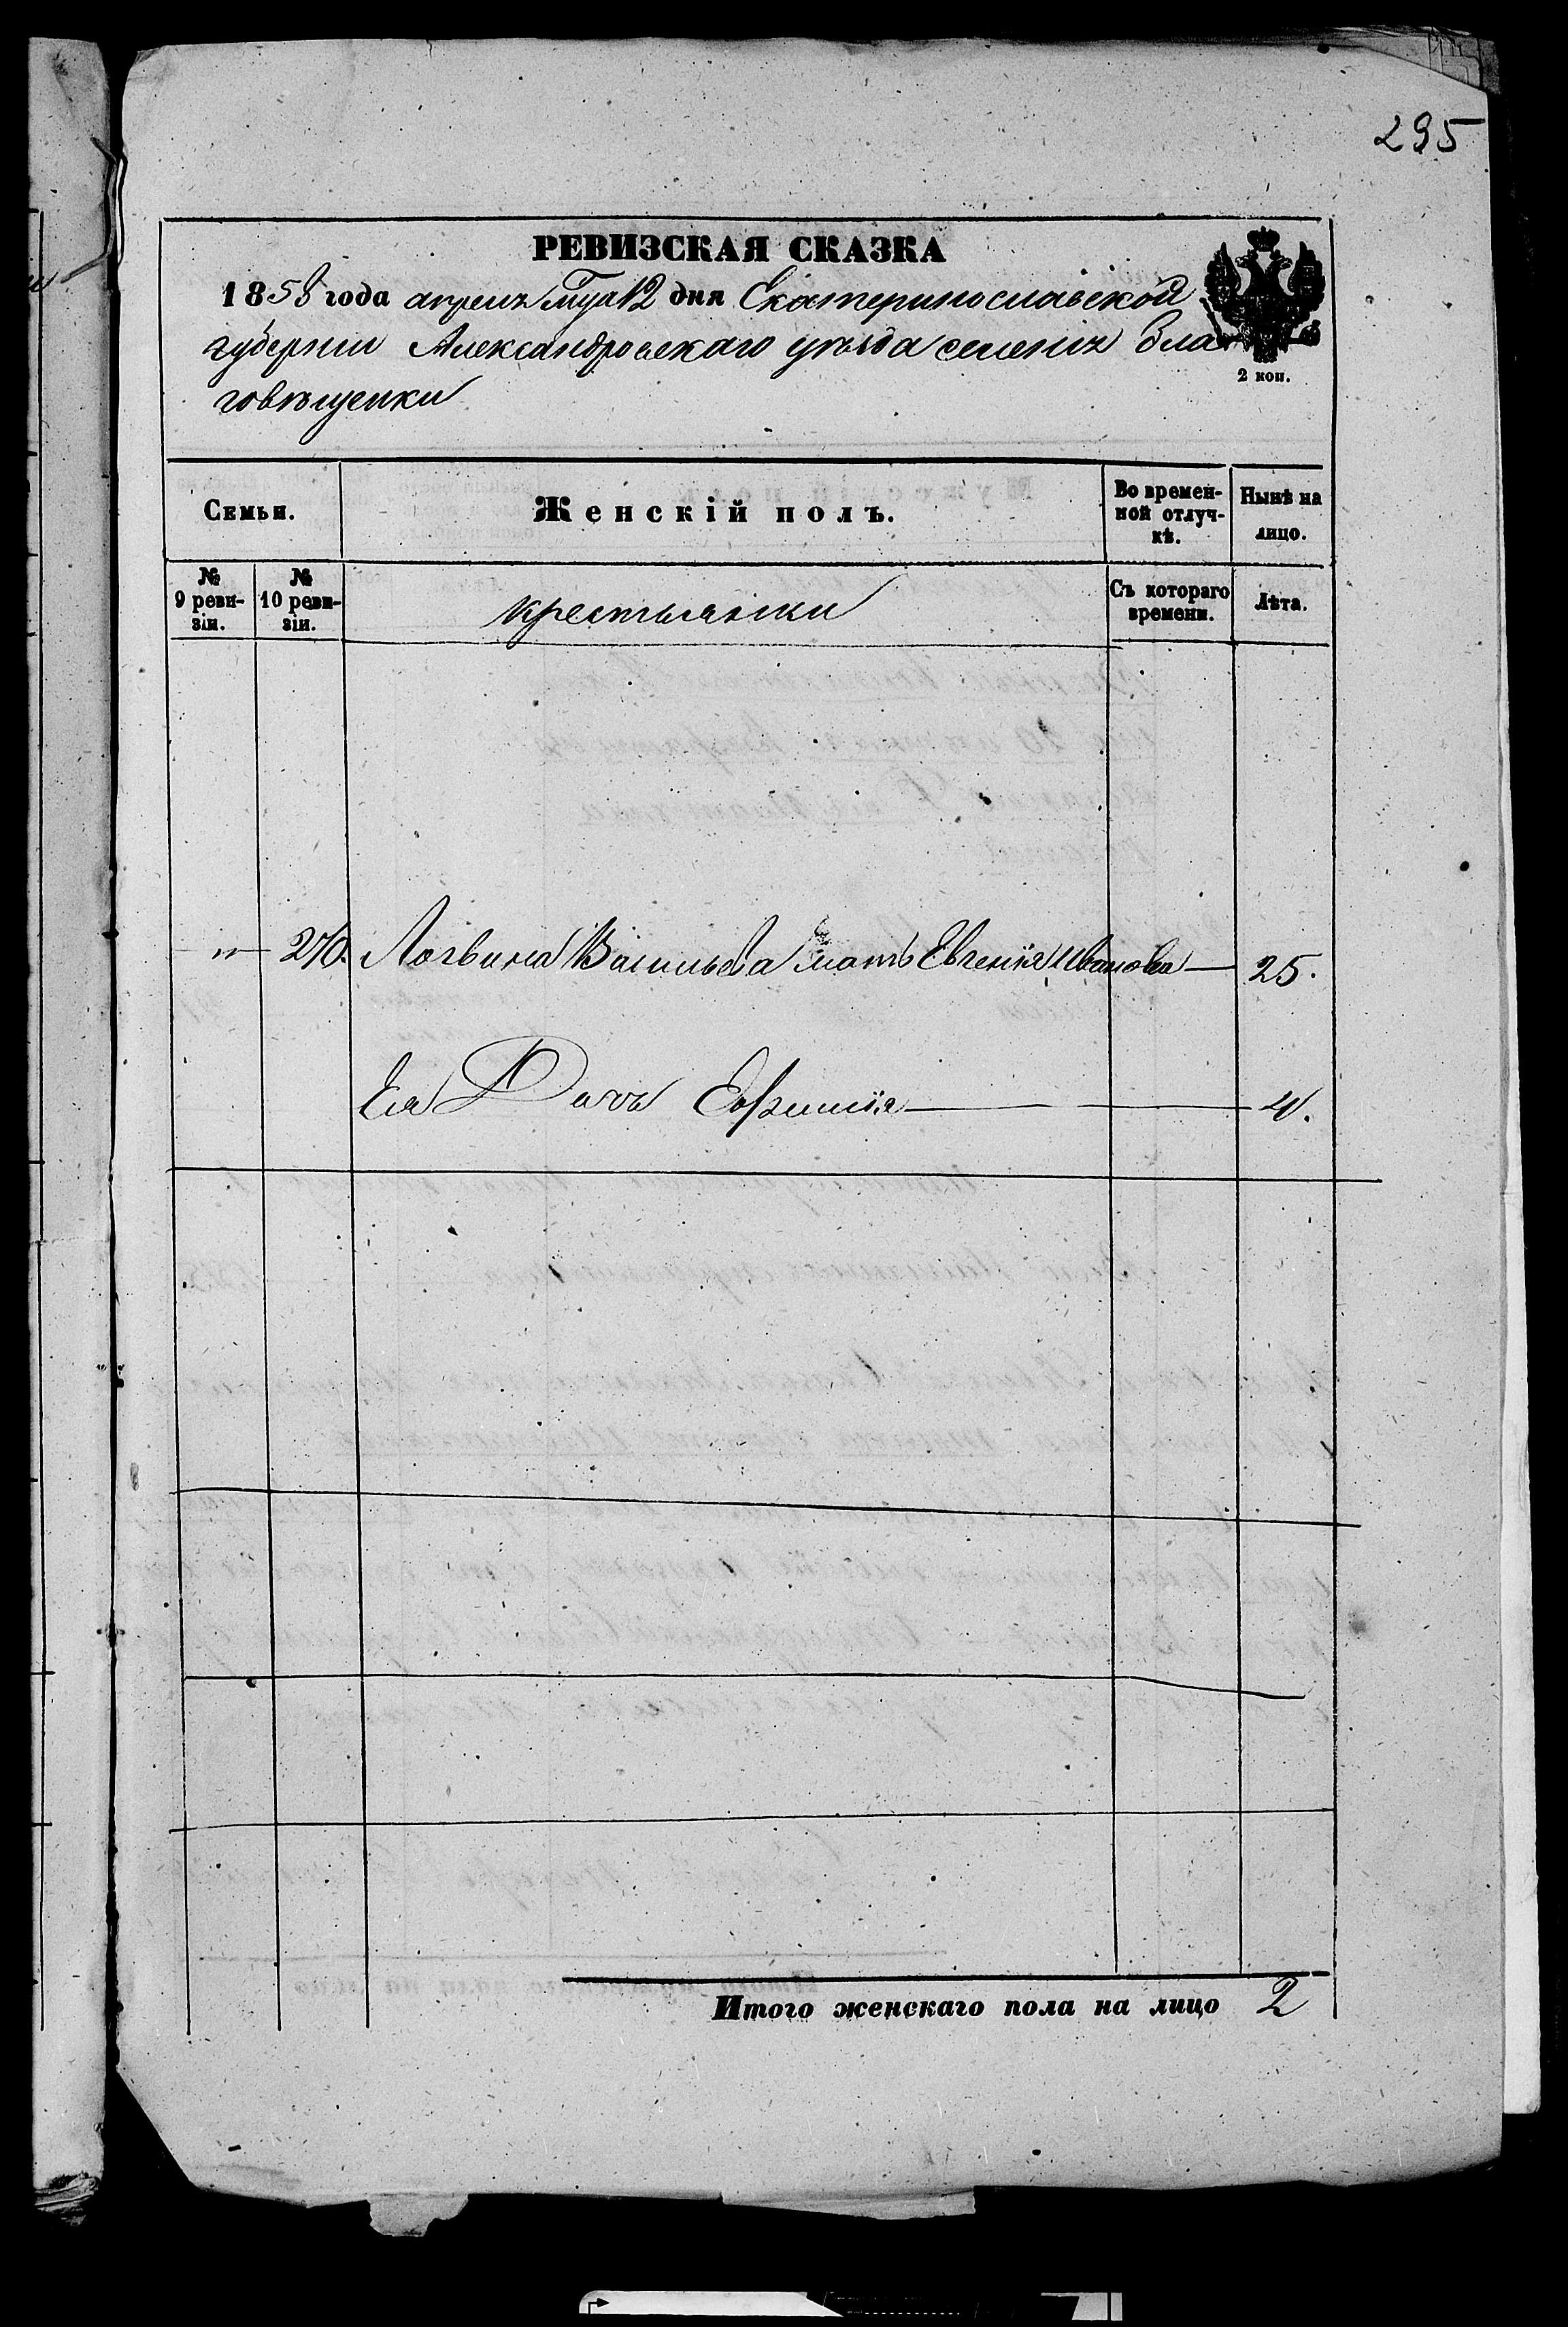 295
РЕВИЗСКАЯ СКАЗКА
1858 года апреля мца 12 дня Екатеринославской
губернiи Александровскаго уѣзда селенiя Бла
говѣщенки
2 коп.
Семьи.
Женскiй полъ.
Во времен-
ной отлуч-
кѣ.
Нынѣ на
лицо.
№
9 реви-
зiи.
№
10 реви-
зiи.
крестьянки
Съ котораго
времени.
Лѣта.
" 270. Логвина Васильева мать Евгенiя Иванова 25.
Ея Дочь Ефимiя 4.
Итого женскаго пола на лицо 2